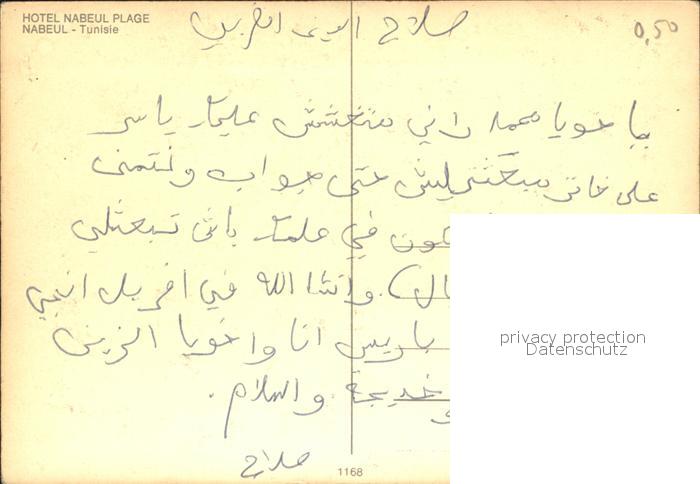 HOTEL NABEUL PLAGE
NABEUL - Tunisie
صلاح الدين الغربي
0,50
يا خويا محمد راني متغشش عليك ياسر
على خاتر مبعثتليش حتى جواب ونتمنى
كون في علمك باش تبعثلي
ال) وانشا الله في افريل انجي
باريس انا واخويا الزين
خديجة والسلام.
صلاح
1168
privacy protection
Datenschutz